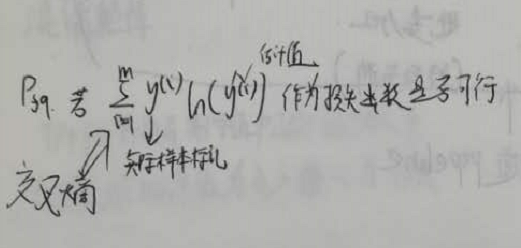 估计值
P39. 若 ∑_{i=1}^{m} y^{(i)} ln(ŷ^{(i)}) 作为损失函数是否可行
实际样本标礼
交叉熵